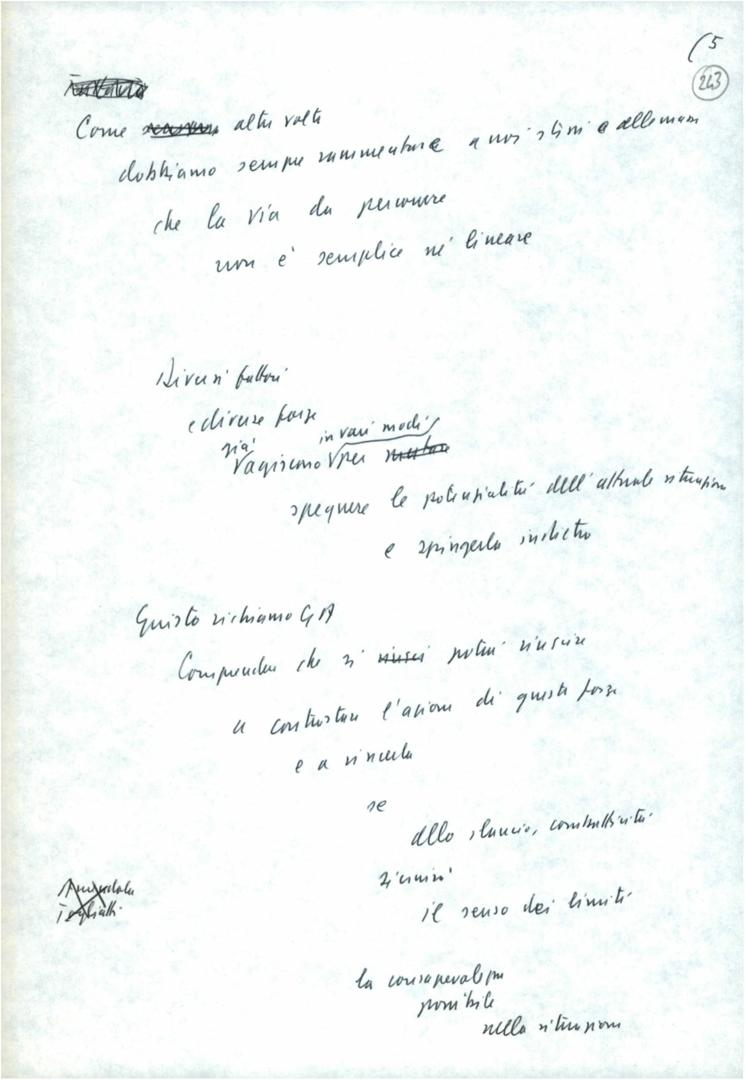 (5
243
Come altre volte
dobbiamo sempre rammentare a noi stessi e alle masse
che la via da percorrere
non è semplice né lineare
Diversi fattori
e diverse forze
già in vari modi
agiscono per
spegnere le potenzialità dell'attuale situazione
e spingerla indietro
Questo richiamo
Comprendere che si riusci potrà riuscire
a contrastare l'azione di queste forze
e a vincerla
se
allo slancio, combattività
si unirà
il senso dei limiti
Amendola
Togliatti
la consapevolezza
possibile
nella situazione